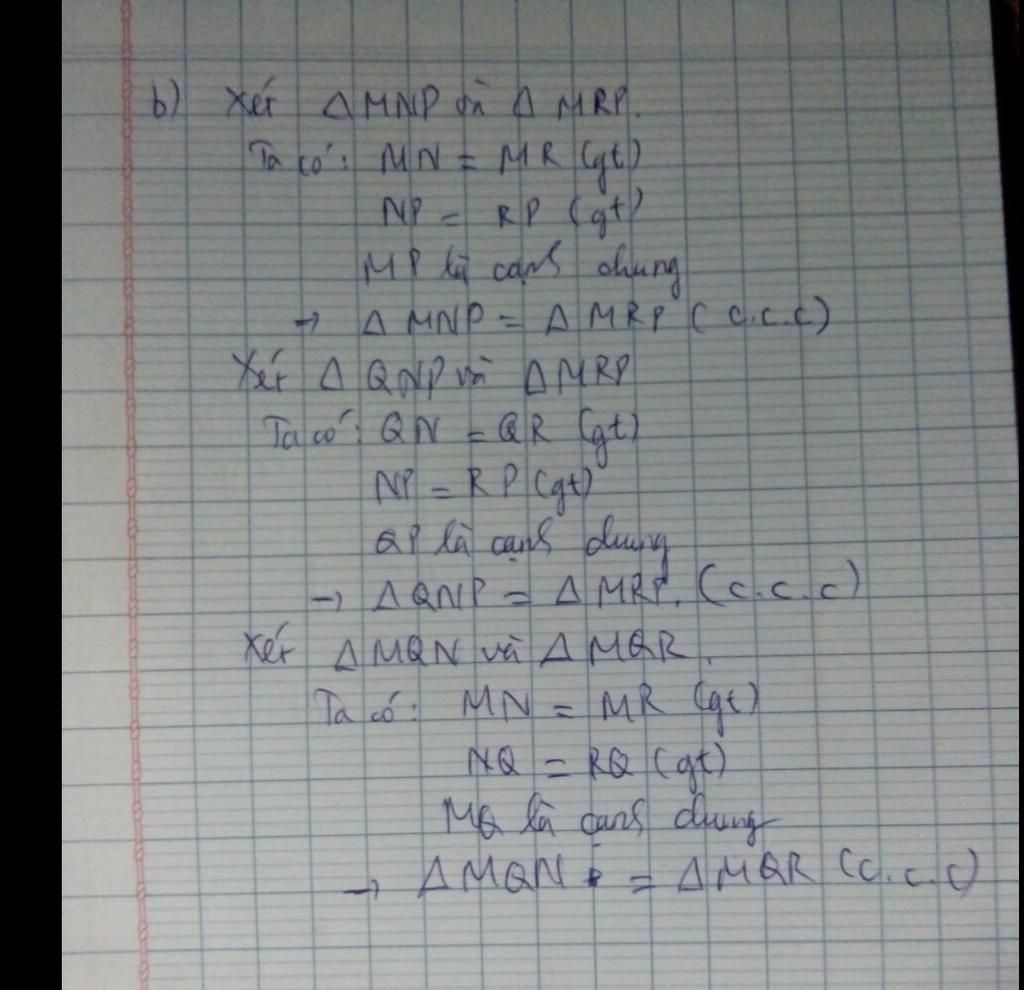 b) Xét Δ MNP và Δ MRP.
Ta có: MN = MR (gt)
NP = RP (gt)
MP là cạnh chung
→ Δ MNP = Δ MRP ( c.c.c)
Xét Δ QNP và Δ MRP
Ta có: QN = QR (gt)
NP = RP (gt)
QP là cạnh chung
→ Δ QNP = Δ MRP. (c.c.c)
Xét Δ MQN và Δ MQR.
Ta có: MN = MR (gt)
NQ = RQ (gt)
MQ là cạnh chung
→ Δ MQN = Δ MQR (c.c.c)